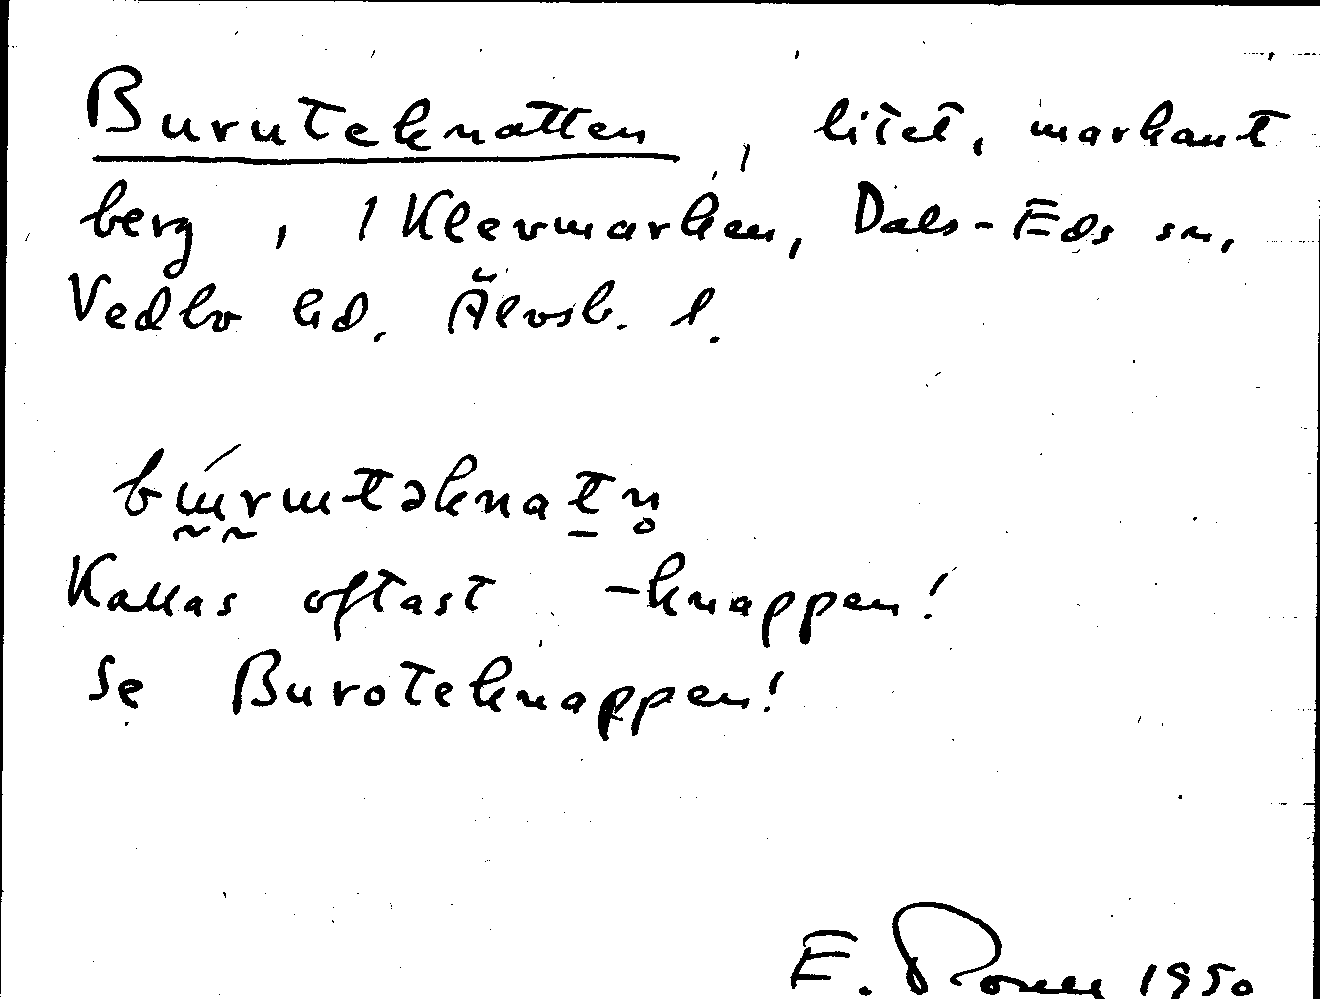 Buruteknatten, litet, markant
berg, i Klevmarken, Dals-Eds sn,
Vedbo hd. Älvsb. l.
Kallas oftast -knappen!
Se Buroteknappen!
E. 1950